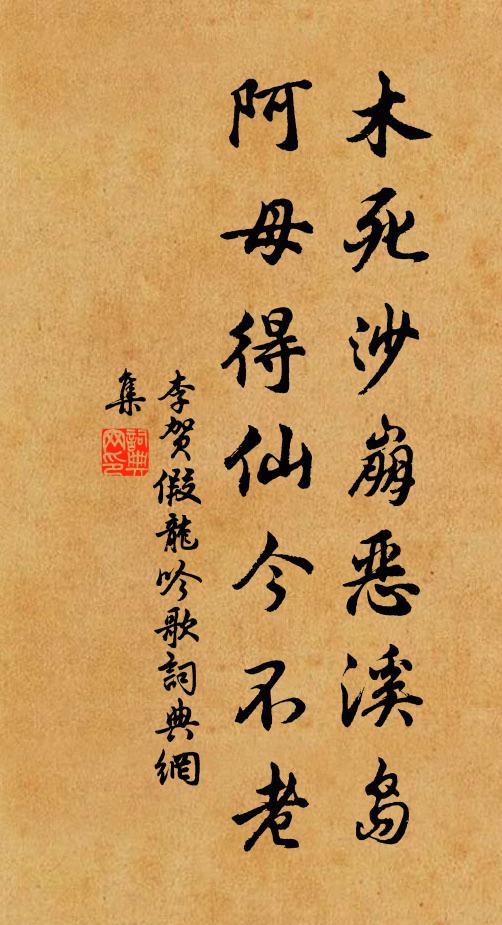 木死沙崩恶溪岛
阿母得仙今不老
李贺假龍吟歌詞典網
集
詞典網印